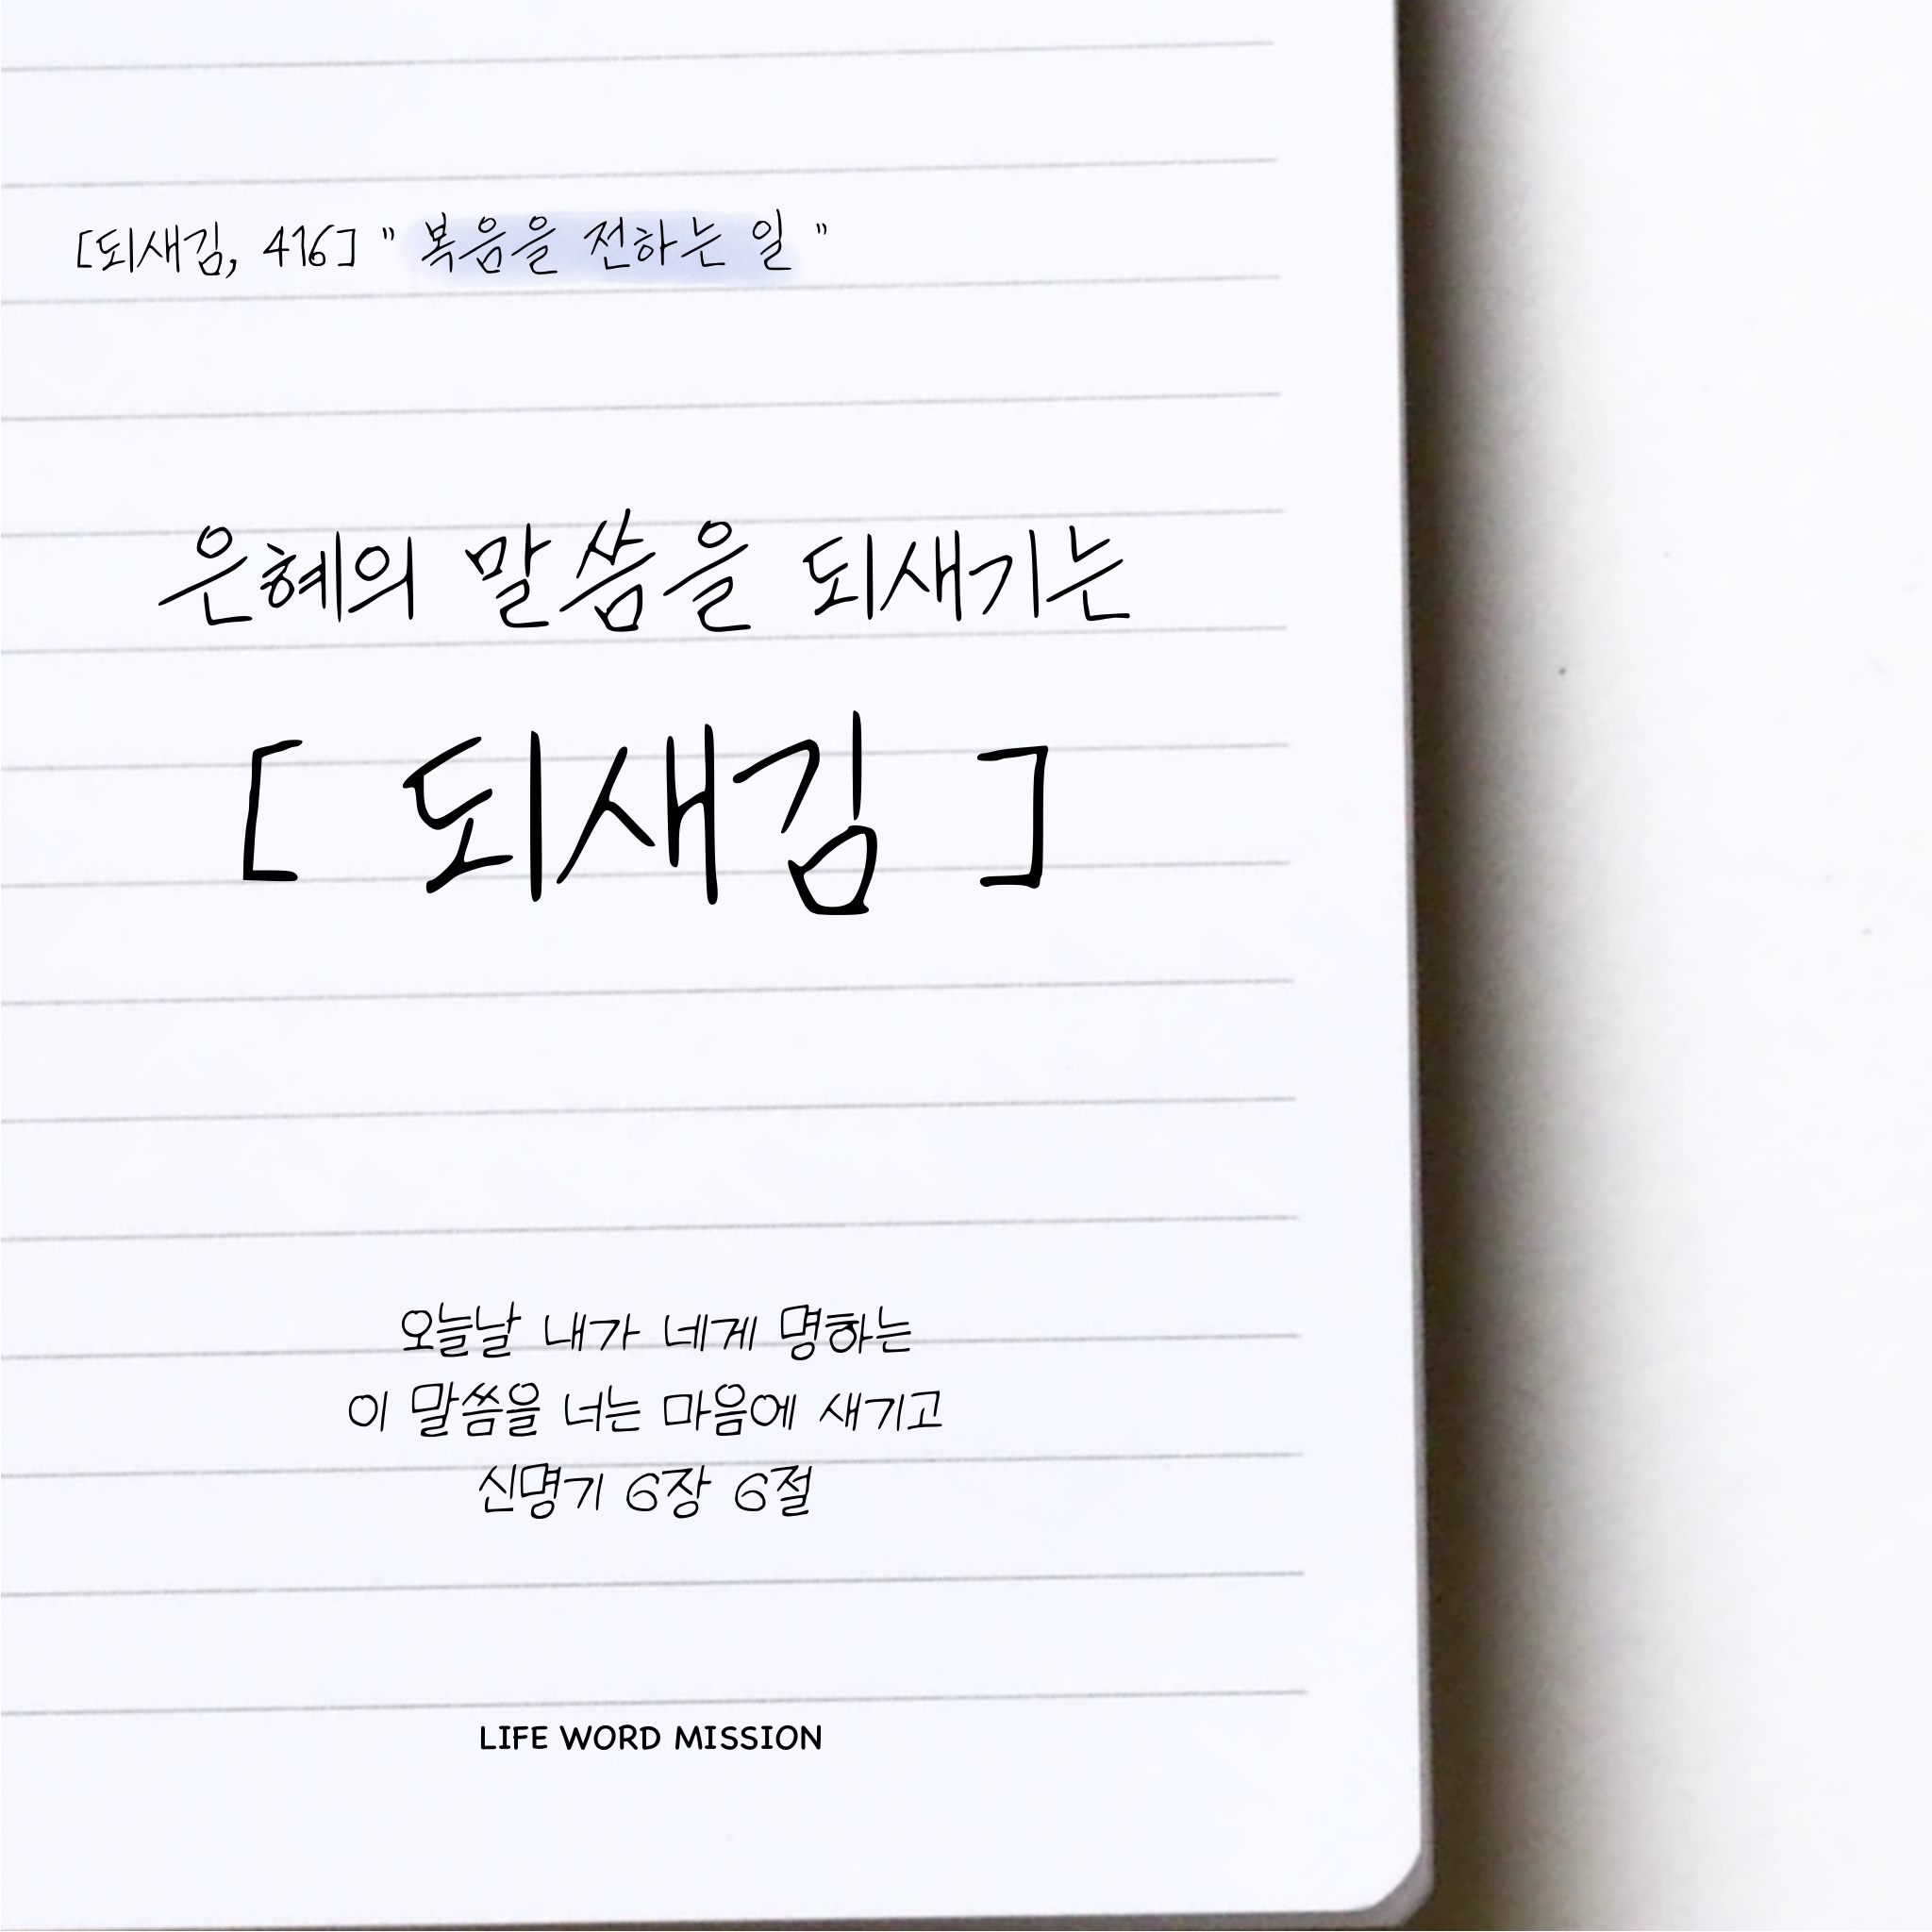 [되새김, 416] " 복음을 전하는 일 "
은혜의 말씀을 되새기는
[ 되새김 ]
오늘날 내가 네게 명하는
이 말씀을 너는 마음에 새기고
신명기 6장 6절
LIFE WORD MISSION